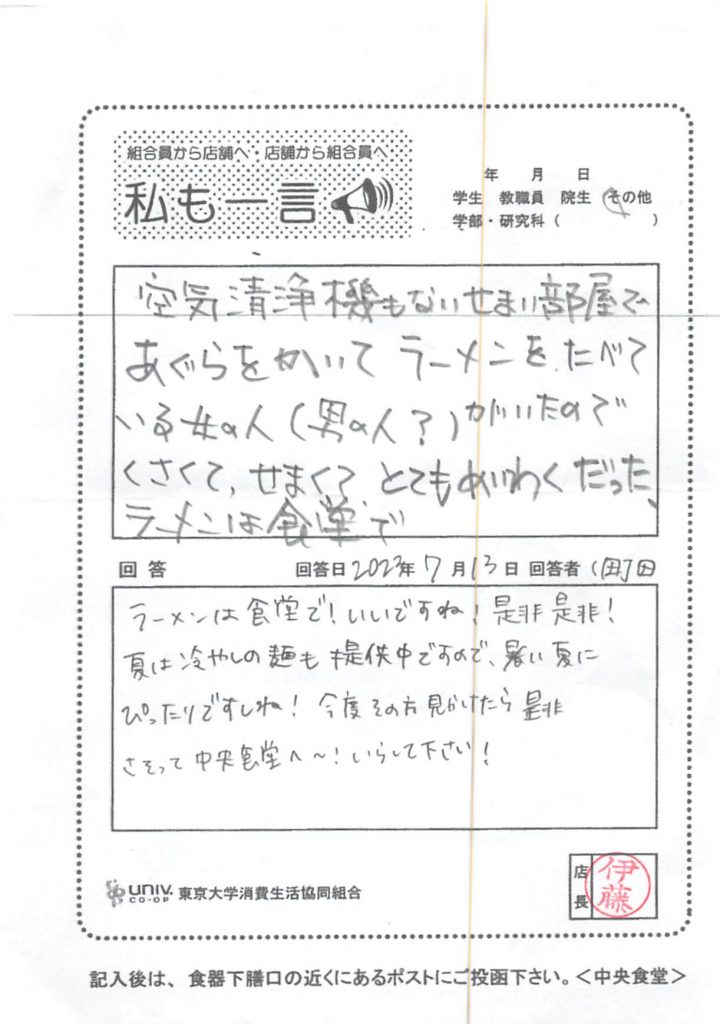 組合員から店舗へ・店舗から組合員へ
私も一言
年 月 日
学生 教職員 院生 その他
学部・研究科( )
空気清浄機もないせまい部屋で
あぐらをかいてラーメンを、たべて
いる女の人(男の人?)がいたので
くさくて、せまくて、とてもめいわくだった、
ラーメンは食堂で
回答 回答日 2023年 7月13日 回答者 (町田
ラーメンは食堂で!いいですね!是非是非!
夏は冷やしの麺も提供中ですので、暑い夏に
ぴったりですしね!今度その方見かけたら是非
さそって中央食堂へ〜!いらして下さい!
店長 伊藤
UNIV. CO-OP 東京大学消費生活協同組合
記入後は、食器下膳口の近くにあるポストにご投函下さい。<中央食堂>